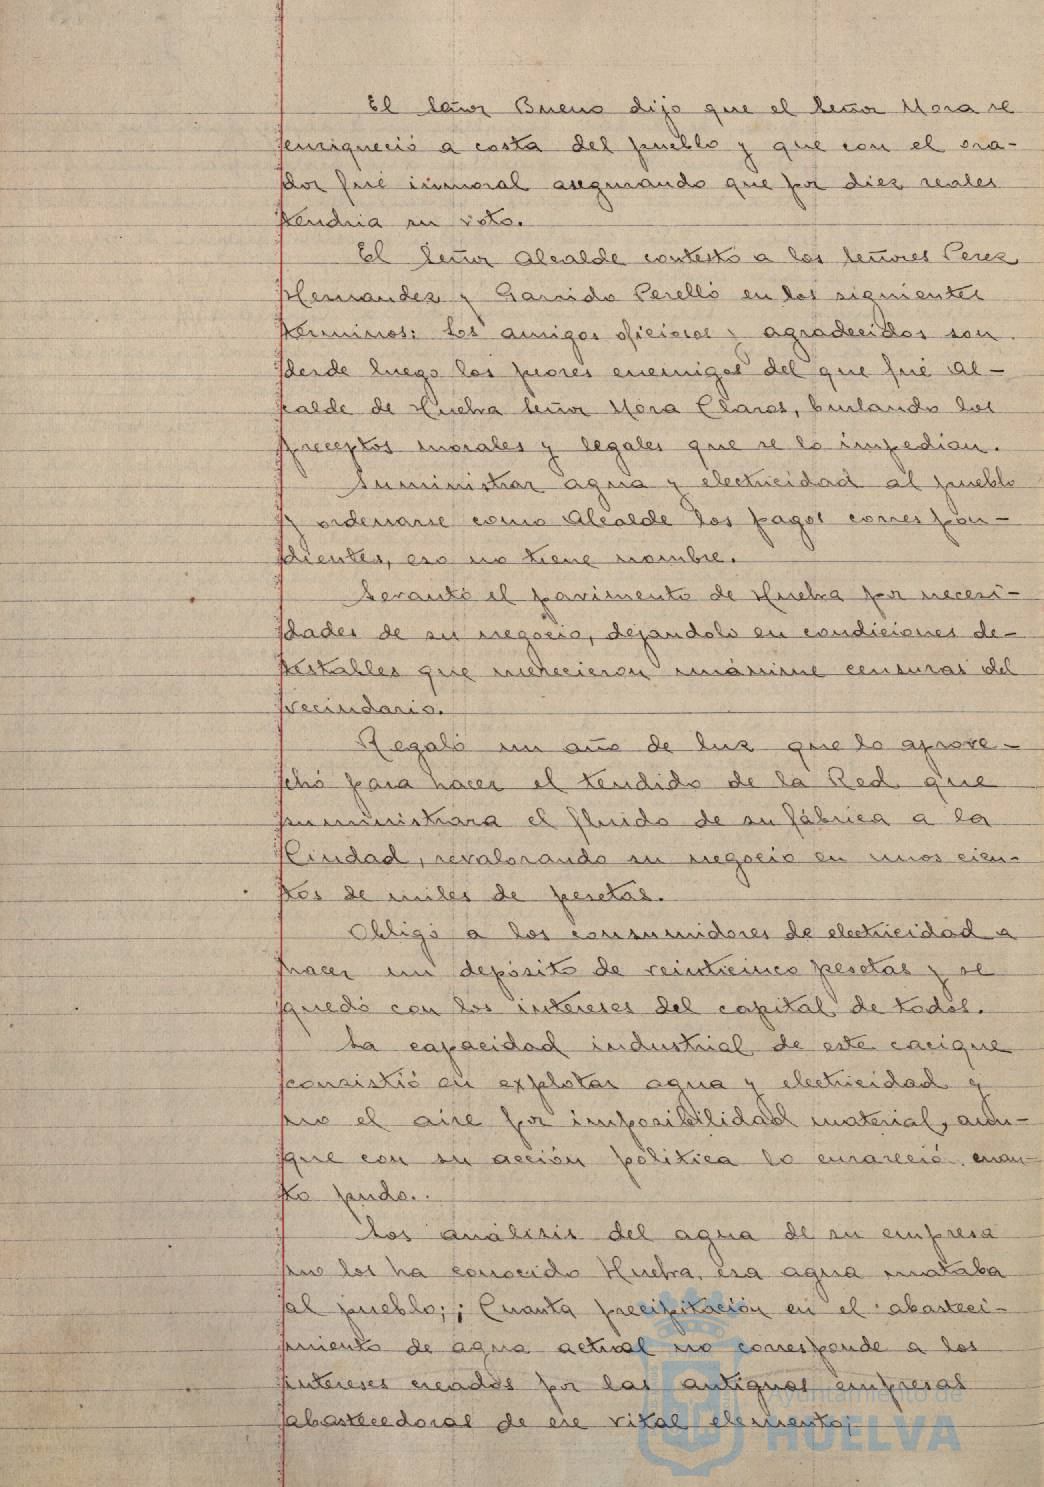 El Señor Bueno dijo que el Señor Mora se
enriqueció a costa del pueblo y que con el ora-
dor fué inmoral asegurando que por diez reales
tendria su voto.
El Señor Alcalde contestó a los Señores Perez
Hernandez y Garrido Perelló en los siguientes
términos: Los amigos oficiosos y agradecidos son
desde luego los peores enemigos del que fué Al-
calde de Huelva Señor Mora Claros, burlando los
preceptos morales y legales que se lo impedian.
Suministrar agua y electricidad al pueblo
y ordenarse como Alcalde los pagos correspon-
dientes, eso no tiene nombre.
Levantó el pavimento de Huelva por necesi-
dades de su negocio, dejandolo en condiciones de-
testables que merecieron unánime censuras del
vecindario.
Regaló un año de luz que lo aprove-
chó para hacer el tendido de la Red que
suministrara el fluido de su fábrica a la
Ciudad, revalorando su negocio en unos cien-
tos de miles de pesetas.
Obligó a los consumidores de electricidad a
hacer un depósito de veinticinco pesetas y se
quedó con los intereses del capital de todos.
La capacidad industrial de este cacique
consistió en explotar agua y electricidad y
no el aire por imposibilidad material, aun-
que con su acción política lo enrareció cuan-
to pudo..
Los análisis del agua de su empresa
no los ha conocido Huelva, esa agua mataba
al pueblo; ¡Cuanta precipitación en el abasteci-
miento de agua actual no corresponde a los
intereses creados por las antiguas empresas
abastecedoras de ese vital elemento;
Ayuntamiento de
HUELVA